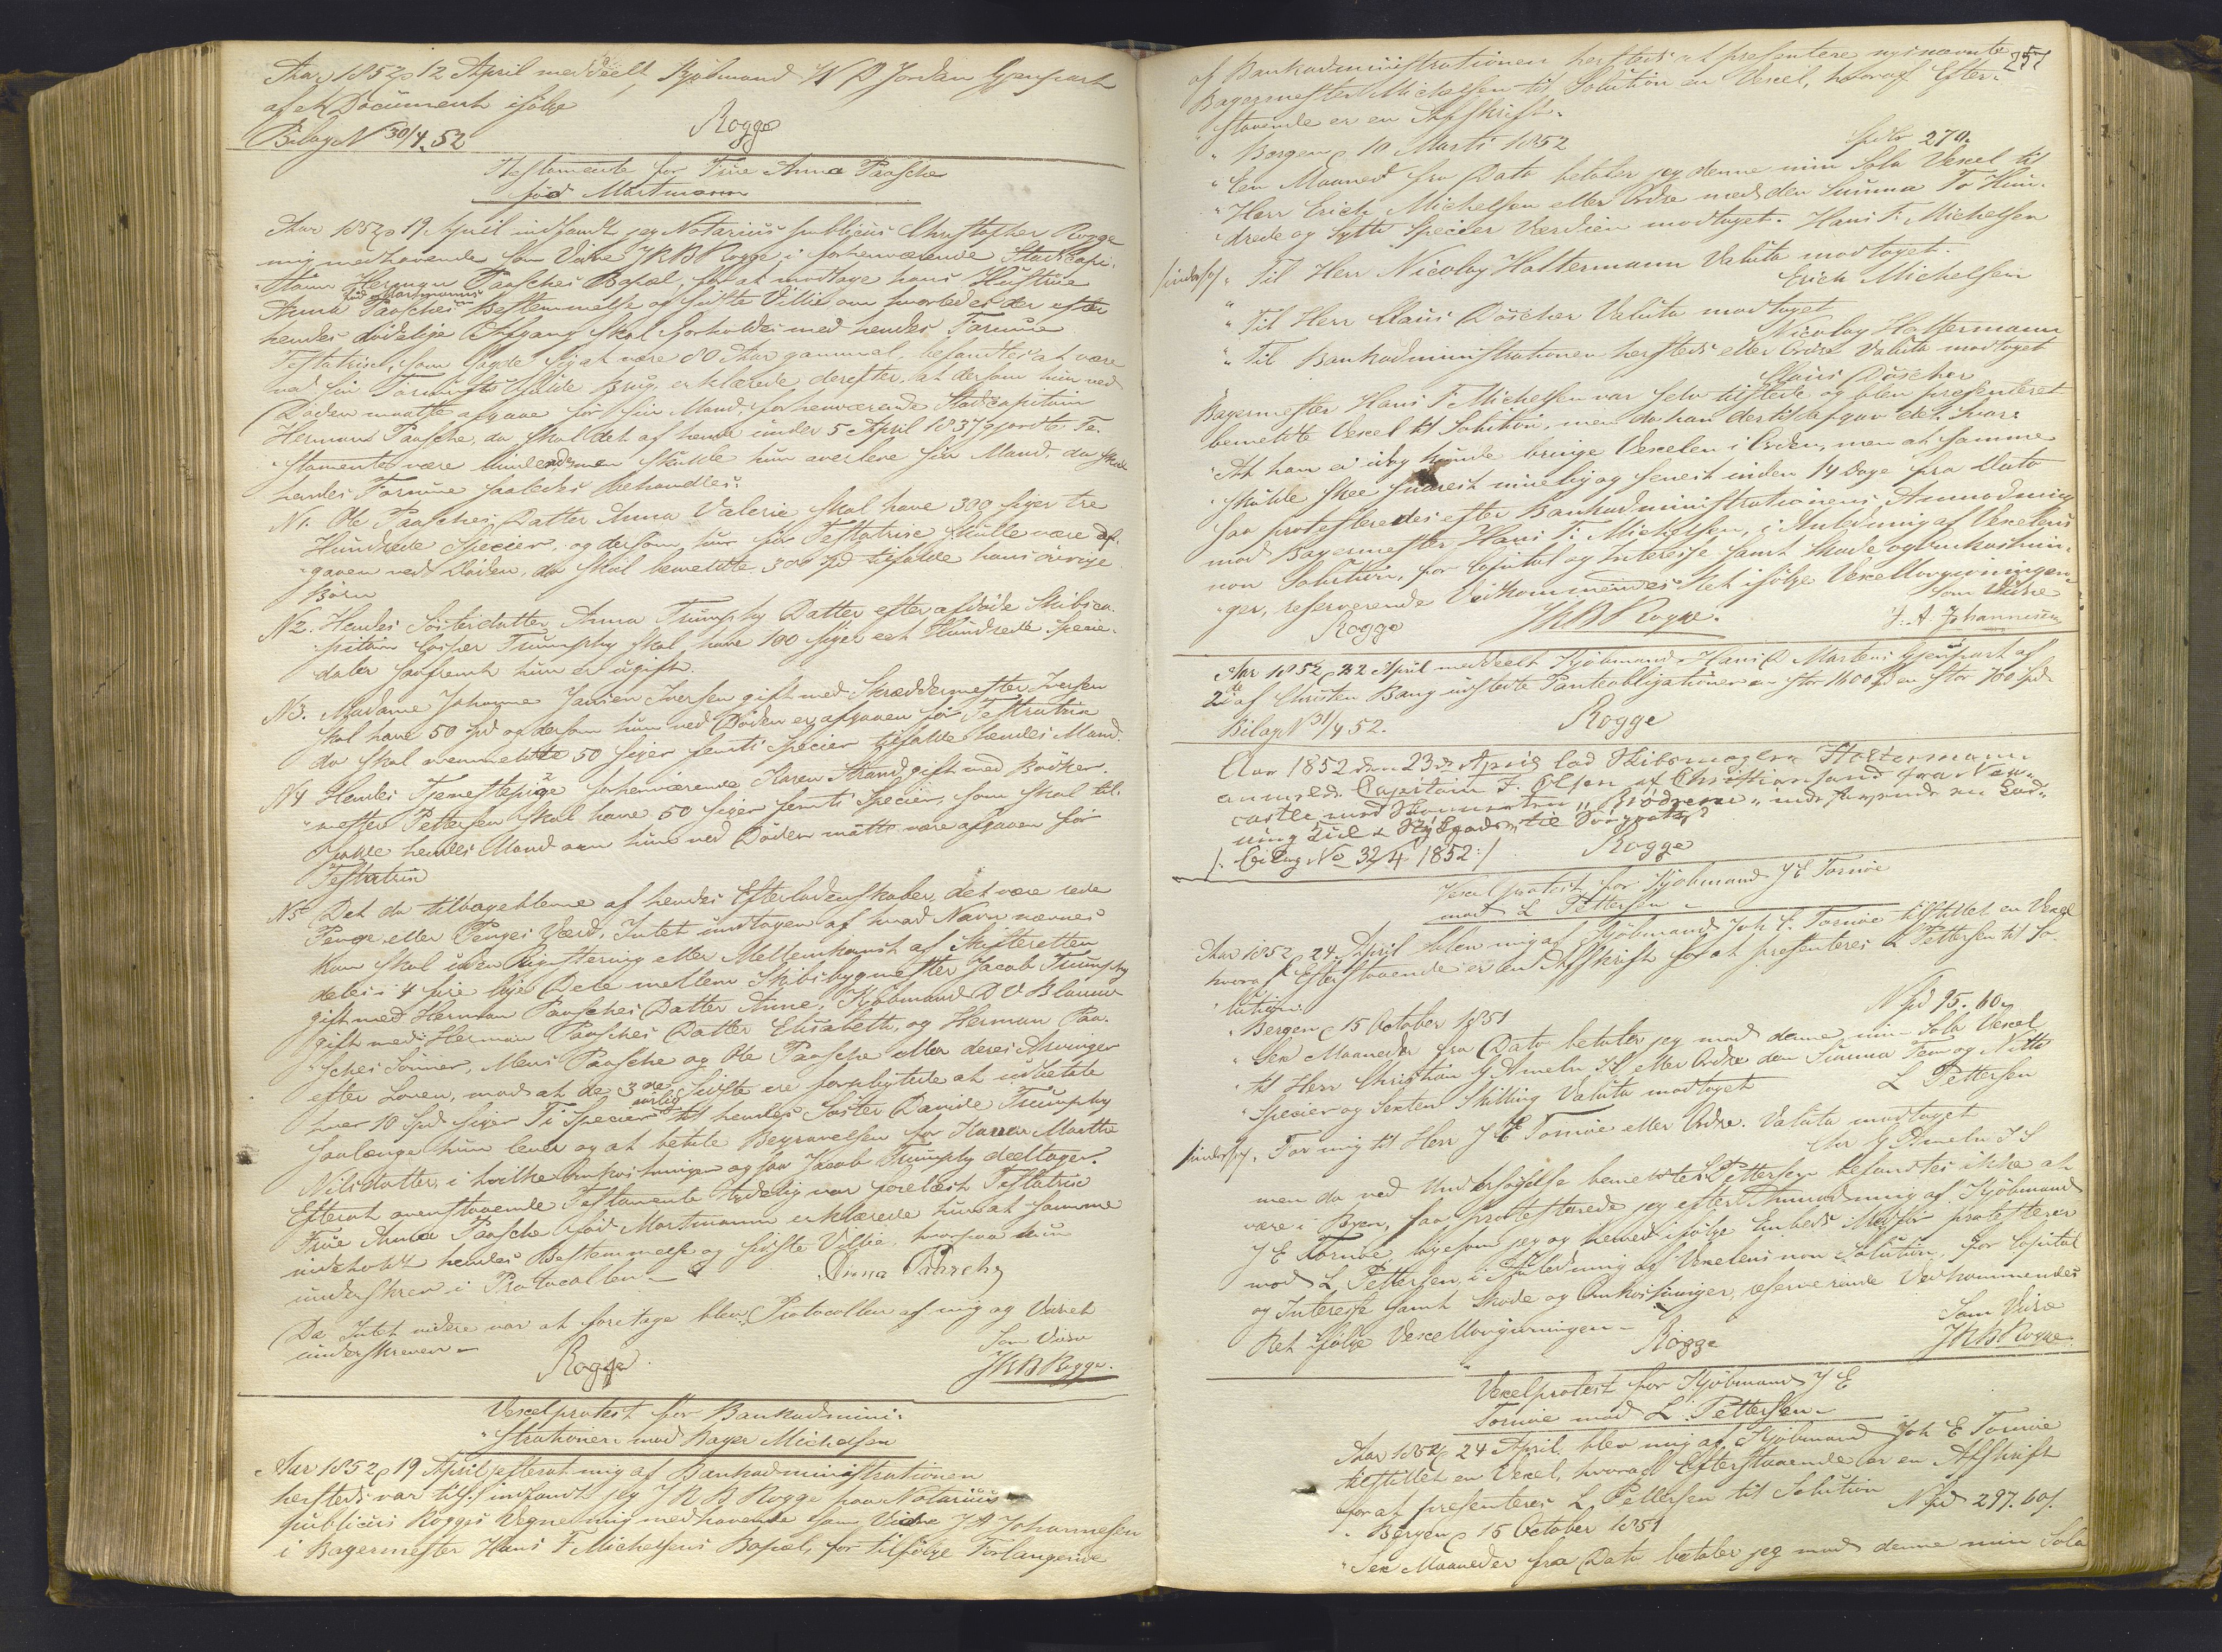 Aar 1852 12 April meddeelt Kjöbmand W D Jordan Gjenpart
af et Document ifölge
Bilag N 30/4 52 Rogge
Testamente for Frue Anna Paasche
föd Martmann
Aar 1852 19 April indfandt jeg Notarius publicus Christopher Rogge
mig medhavende som Vidne JRB Rogge i forhenværende Stadscapi-
tain Herman Paasches Bopæl, for at modtage hans Hustrue
Anna Paasches föd Martmanns Bestemmelse og sidste Villie om hvorledes der efter
hendes dödelige Afgang skal forholdes med hendes Formue
Testatrice, som sagde sig at være 80 Aar gammel, befandtes at være
ved sin Fornufts fulde Brug, erklærede derefter, at dersom hun ved
Döden maatte afgaae för sin Mand, forhenværende Stadscapitain
Herman Paasche, da skal det af hende under 5 April 1837 gjorte Te-
stamente være men skulde hun overleve sin Mand, da skal
hendes Formue saaledes behandles:
N 1. Ole Paasches Datter Anna Valerie skal have 300 siger tre
Hundrede Specier, og dersom hun för Testatrice skulle være af-
gaaen ved Döden, da skal bemeldte 300 Spd tilfalde hans övrige
Börn
N 2. Hendes Sösterdatter Anna Trumphy Datter efter afdöde Skibsca-
pitain Casper Trumphy skal have 100 siger eet Hundrede Specie-
daler saafremt hun er ugift.
N 3. Madame Johanne Iversen gift med Skræddermester Iversen
skal have 50 Spd og dersom hun ved Döden er afgaaen för Testatrice
da skal ovenmeldte 50 siger femti Specier tilfalde hendes Mand.
N 4 Hendes Tjenestepige forhenværende Karen Strand gift med Bödker-
mester Pettersen skal have 50 siger femti Specier, som skal til-
falde hendes Mand om hun ved Döden måtte være afgaaen för
Testatrice
N 5 Det da tilbageblevne af hendes Efterladenskaber, det være rede
Penge eller Penges Værd, Intet undtagen af hvad Navn nævnes
kan skal uden Registrering eller Mellemkomst af Skifteretten
deles i 4 fire lige Dele mellem Skibsbygmester Jacob Trumphy
gift med Herman Paasches Datter Anne, Kjöbmand D V Blaauw
gift med Herman Paasches Datter Elisabeth, og Herman Paa-
sches Sönner, Mens Paasche og Ole Paasche eller deres Arvinger
efter Loven, mod at de 3de Sidste ere forpligtede at udbetale
hver 10 Spd siger Ti Specier aarlig til hendes Söster Davide Trumphy
saalænge hun lever og at betale Begravelsen for Karen Marthe
Nilsdatter, i hvilke Omkostninger ogsaa Jacob Trumphy deeltager.
Efterat ovenstaaende Testamente tydelig var forelæst Testatrice
Frue Anna Paasche föd Martmann erklærede hun at samme
indeholdt hendes Bestemmelse og sidste Villie hvorpaa hun
underskrev i Protocollen — Anna Paasche
Da Intet videre var at foretage blev Protocollen af mig og Vidnet
underskreven — Som Vidne
Rogge JRB Rogge.
Vexelprotest for Bankadmini-
strationen mod Bager Michelsen
Aar 1852 19 April efterat mig af Bankadministrationen
hersteds var tils. indfandt jeg J R B Rogge paa Notarius
publicus Rogges Vegne mig medhavende som Vidne J A Johannesen
i Bagermester Hans F Michelsens Bopæl, for tilfölge Forlangende
257
af Bankadministrationen hersteds at presentere nysnævnte
Bagermester Michelsen til Solution en Vexel, hvoraf Efter-
staaende er en Afskrift.
" Bergen 10 Marts 1852 Spdlr 270.
" Een Maaned fra Dato betaler jeg denne min Sola Vexel til
" Herr Erich Michelsen eller Ordre med den Summa To Hun-
drede og Sytti Specier Værdien modtaget. Hans F. Michelsen
/indos/ " Til Herr Nicolay Holtermann Valuta modtaget.
Erich Michelsen
" Til Herr Claus Döscher Valuta modtaget
Nicolay Holtermann
" Til Bankadministrationen hersteds eller Ordre Valuta modtaget
Claus Döscher
Bagermester Hans F. Michelsen var selv tilstede og blev presenteret
bemeldte Vexel til Solution, men da han dertil afgav det Svar:
At han ei idag kunde bringe Vexelen i Orden, men at samme
skulde skee snarest muelig og senest inden 14 Dage fra Dato
saa protesteredes efter Bankadministrationens Anmodning
mod Bagermester Hans F. Michelsen, i Anledning af Vexelens
non Solution, for Capital og Interesse samt Skade og Omkostnin-
ger, reserverende Vedkommendes Ret ifölge Vexellovgivningen.
Som Vidne
Rogge JRB Rogge. J. A. Johannesen
Aar 1852 22 April meddeelt Kjöbmand Hans D Martens Gjenpart af
2de af Christen Bang udstedte Panteobligationer en stor 1600 Spd en stor 700 Spd.
Bilag N 31/4 52. Rogge
Aar 1852 den 23de April lod Skibsmægler Holtermann
anmelde Capitain F. Olsen af Christiansand fra New-
castle med Skonnerten "Brödrene" indehavende en Lad-
ning Kul & Stÿkgods til
/: Bilag No 32/4 1852 :/ Rogge
Vexelprotest for Kjöbmand J E Tornöe
mod L Pettersen —
Aar 1852 24 April blev mig af Kjöbmand Joh E. Tornöe tilstillet en Vexel
hvoraf Efterstaaende er en Afskrift for at presenteres L Pettersen til So-
lution.
" Bergen 15 October 1851 N Spd 95. 60
" Sex Maaneder fra Dato betaler jeg mod denne min Sola Vexel
" til Herr Christian G Ameln J S eller Ordre den Summa Fem og Nitti
" Specier og Sexten Skilling Valuta modtaget L Pettersen
/indos/ " For mig til Herr J E Tornöe eller Ordre. Valuta modtaget
Chr G Ameln J S
men da ved Undersögelse bemeldte L Pettersen befandtes ikke at
være i Byen, saa protesterede jeg efter Anmodning af Kjöbmand
J E Tornöe, ligesom jeg og herved ifölge Embeds Medför protesterer
mod L Pettersen, i Anledning af Vexelens non Solution, for Capital
og Interesse samt Skade og Omkostninger, reserverende Vedkommendes
Ret ifölge Vexellovgivningen — Som Vidne
Rogge JRB Rogge
Vexelprotest for Kjöbmand J E
Tornöe mod L. Pettersen —
Aar 1852 24 April blev mig af Kjöbmand Joh E Tornöe
tilstillet en Vexel, hvoraf Efterstaaende er en Afskrift
for at presenteres L Pettersen til Solution
" Bergen 15 October 1851 N Spd 297. 60
" Sex Maaneder fra Dato betaler jeg mod denne min Sola